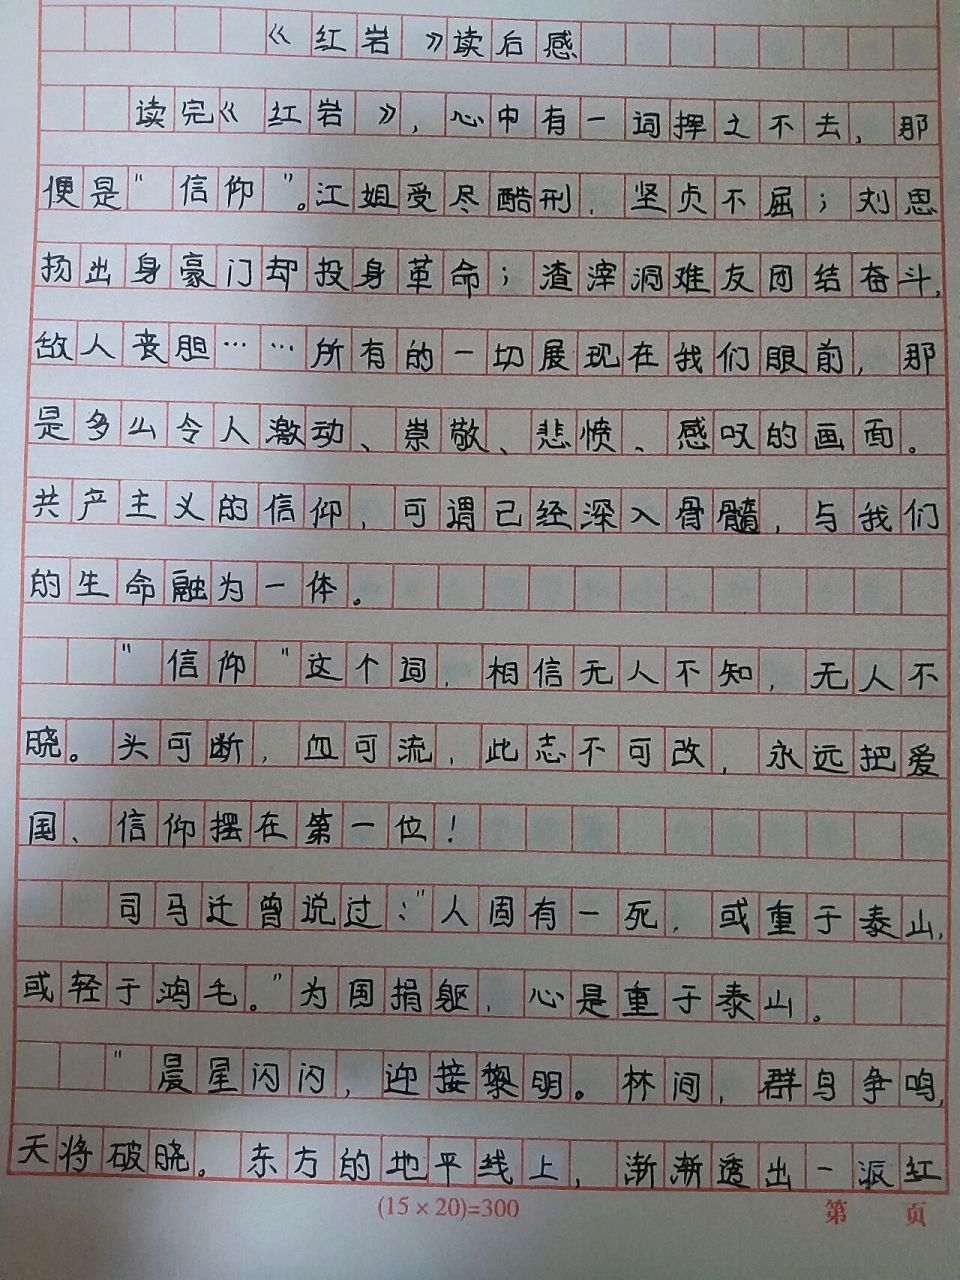 《红岩》读后感
读完《红岩》，心中有一词挥之不去，那
便是“信仰”。江姐受尽酷刑，坚贞不屈；刘思
扬出身豪门却投身革命；渣滓洞难友团结奋斗，
敌人丧胆……所有的一切展现在我们眼前，那
是多么令人激动、崇敬、悲愤、感叹的画面。
共产主义的信仰，可谓已经深入骨髓，与我们
的生命融为一体。
“信仰”这个词，相信无人不知，无人不
晓。头可断，血可流，此志不可改，永远把爱
国、信仰摆在第一位！
司马迁曾说过：“人固有一死，或重于泰山，
或轻于鸿毛。”为国捐躯，心是重于泰山。
“晨星闪闪，迎接黎明。林间，群鸟争鸣，
天将破晓。东方的地平线上，渐渐透出一派红
(15×20)=300 第 页